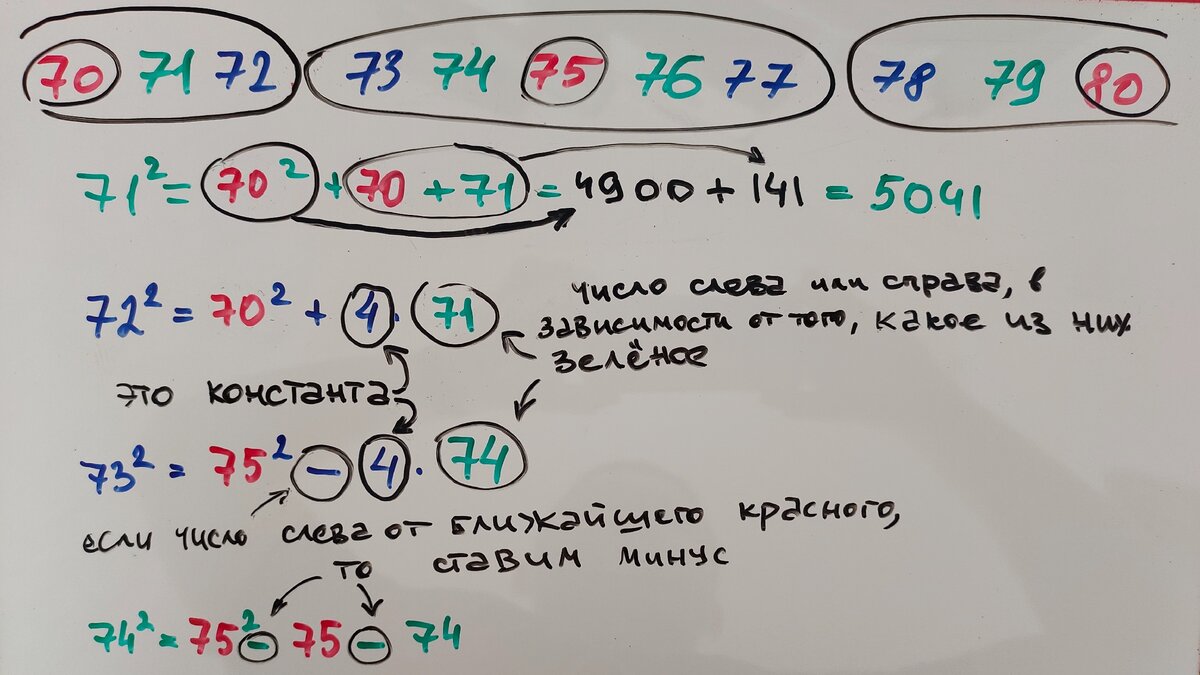 70 71 72 73 74 75 76 77 78 79 80
71² = 70² + 70 + 71 = 4900 + 141 = 5041
72² = 70² + 4 · 71
число слева или справа, в
зависимости от того, какое из них
зелёное
это константа
73² = 75² − 4 · 74
если число слева от ближайшего красного,
то ставим минус
74² = 75² − 75 − 74